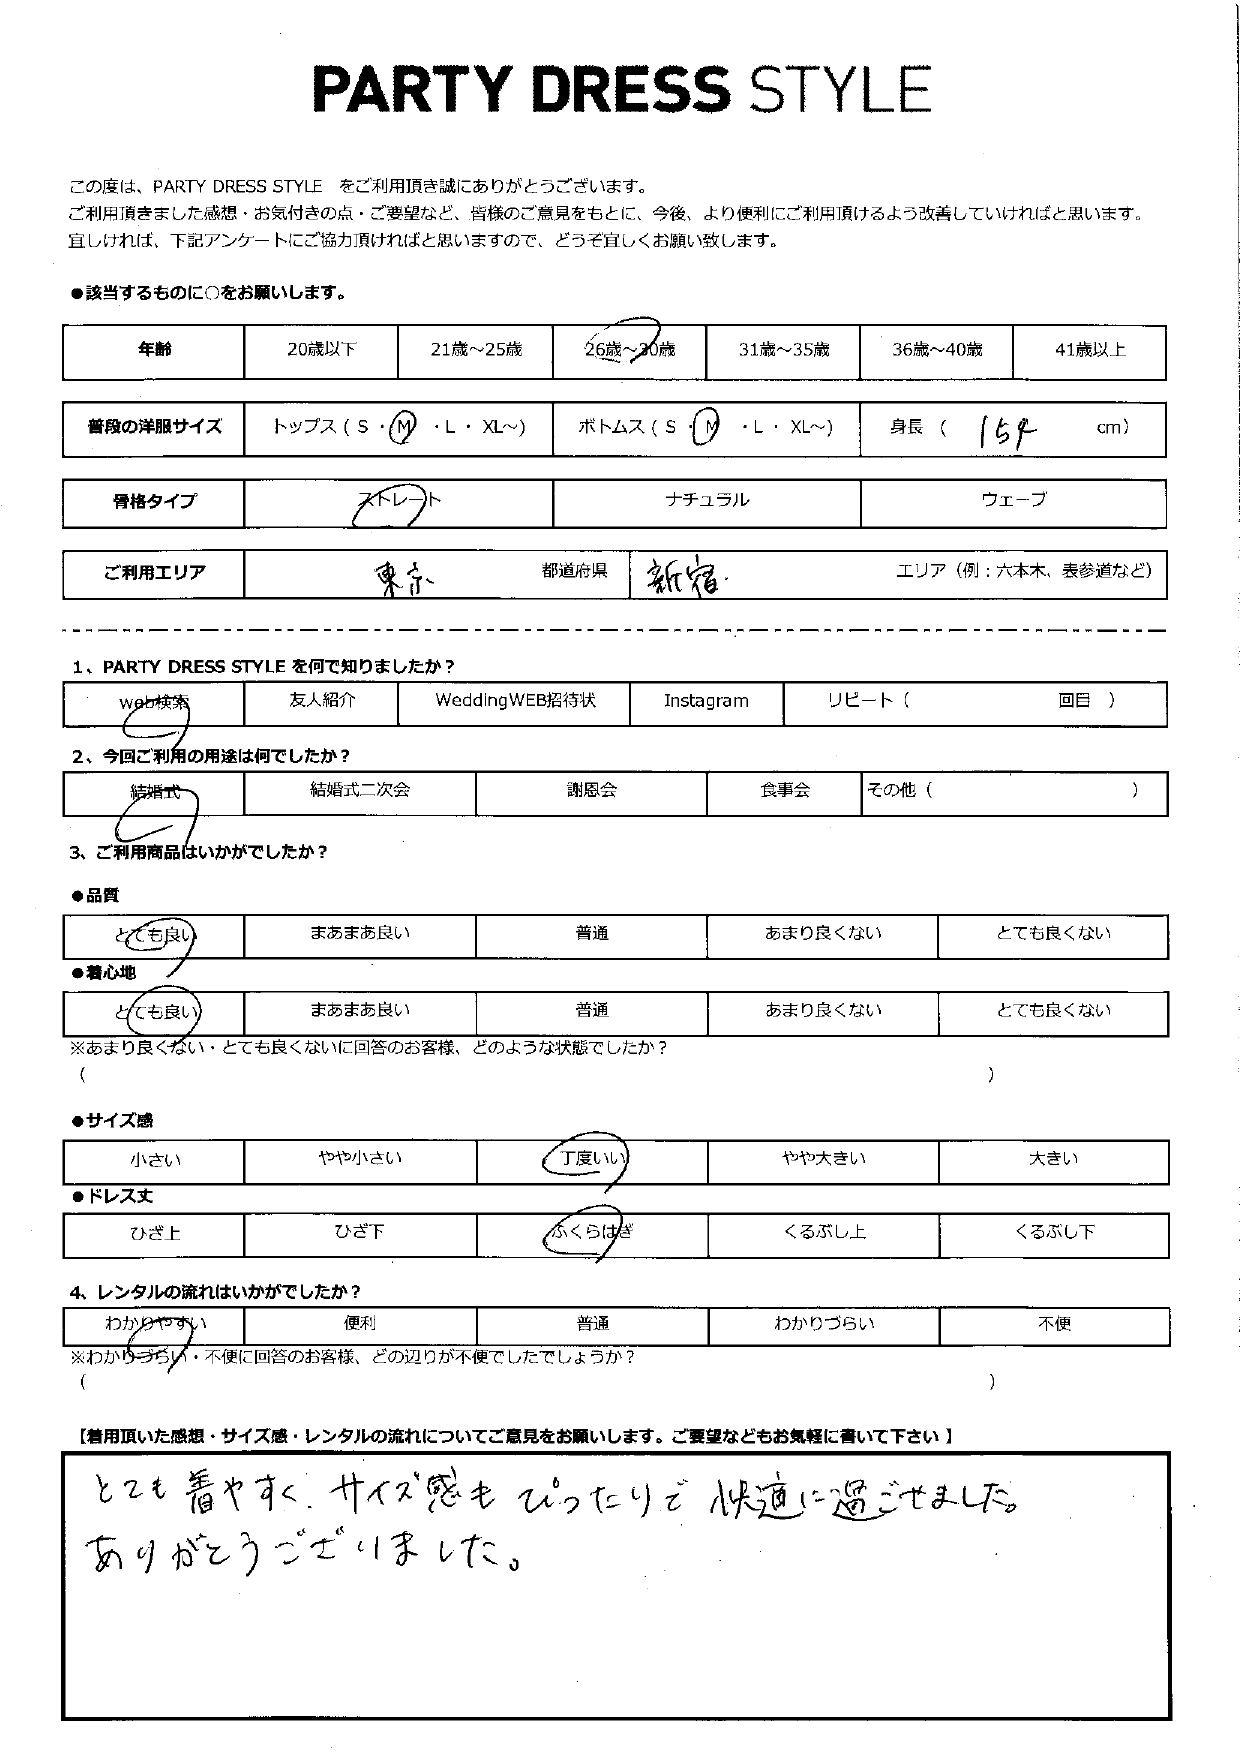 PARTY DRESS STYLE
この度は、PARTY DRESS STYLE をご利用頂き誠にありがとうございます。
ご利用頂きました感想・お気付きの点・ご要望など、皆様のご意見をもとに、今後、より便利にご利用頂けるよう改善していければと思います。
宜しければ、下記アンケートにご協力頂ければと思いますので、どうぞ宜しくお願い致します。
●該当するものに○をお願いします。
年齢 20歳以下 21歳～25歳 26歳～30歳 31歳～35歳 36歳～40歳 41歳以上
普段の洋服サイズ トップス ( S ・M ・L・ XL～) ボトムス ( S ・M ・L・ XL～) 身長 ( 154 cm)
骨格タイプ ストレート ナチュラル ウェーブ
ご利用エリア 東京 都道府県 新宿 エリア（例：六本木、表参道など）
1、PARTY DRESS STYLE を何で知りましたか？
web検索 友人紹介 WeddingWEB招待状 Instagram リピート（ 回目 ）
2、今回ご利用の用途は何でしたか？
結婚式 結婚式二次会 謝恩会 食事会 その他（ ）
3、ご利用商品はいかがでしたか？
●品質
とても良い まあまあ良い 普通 あまり良くない とても良くない
●着心地
とても良い まあまあ良い 普通 あまり良くない とても良くない
※あまり良くない・とても良くないに回答のお客様、どのような状態でしたか？
（ ）
●サイズ感
小さい やや小さい 丁度いい やや大きい 大きい
●ドレス丈
ひざ上 ひざ下 ふくらはぎ くるぶし上 くるぶし下
4、レンタルの流れはいかがでしたか？
わかりやすい 便利 普通 わかりづらい 不便
※わかりづらい・不便に回答のお客様、どの辺りが不便でしたでしょうか？
（ ）
【着用頂いた感想・サイズ感・レンタルの流れについてご意見をお願いします。ご要望などもお気軽に書いて下さい 】
とても着やすく、サイズ感もぴったりで快適に過ごせました。
ありがとうございました。